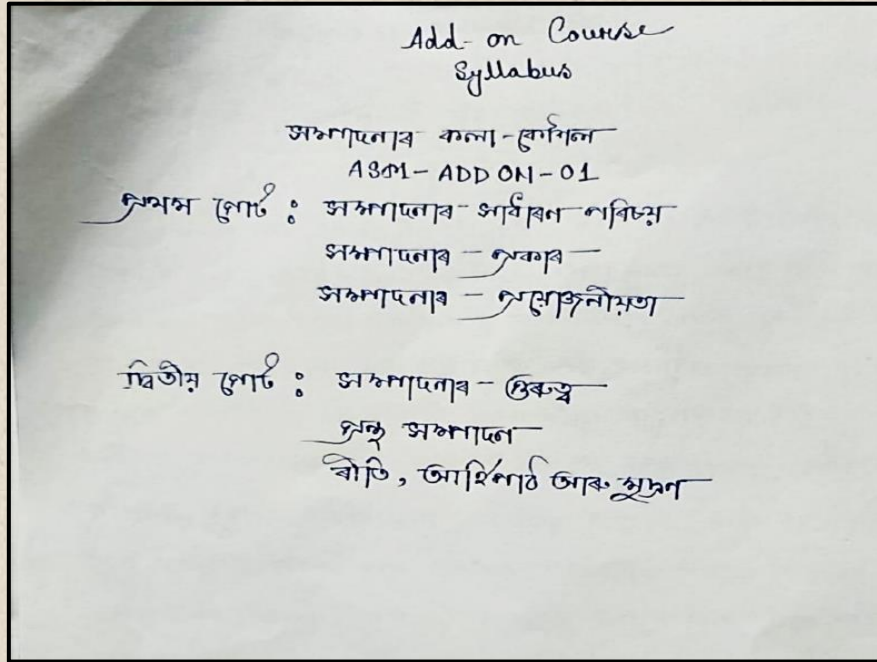 Add-on Course
Syllabus
সম্পাদনাৰ কলা-কৌশল
ASM-ADD ON-01
প্ৰথম গোট : সম্পাদনাৰ সাধাৰন পৰিচয়
সম্পাদনাৰ - প্ৰকাৰ
সম্পাদনাৰ - প্ৰয়োজনীয়তা
দ্বিতীয় গোট : সম্পাদনাৰ - গুৰুত্ব
গ্ৰন্থ সম্পাদন
ৰীতি, আৰ্হিপাঠ আৰু মুদ্ৰণ